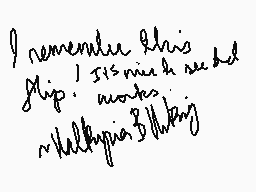 I remember this
flip! It's nice to see old
works.
~Valkyrie